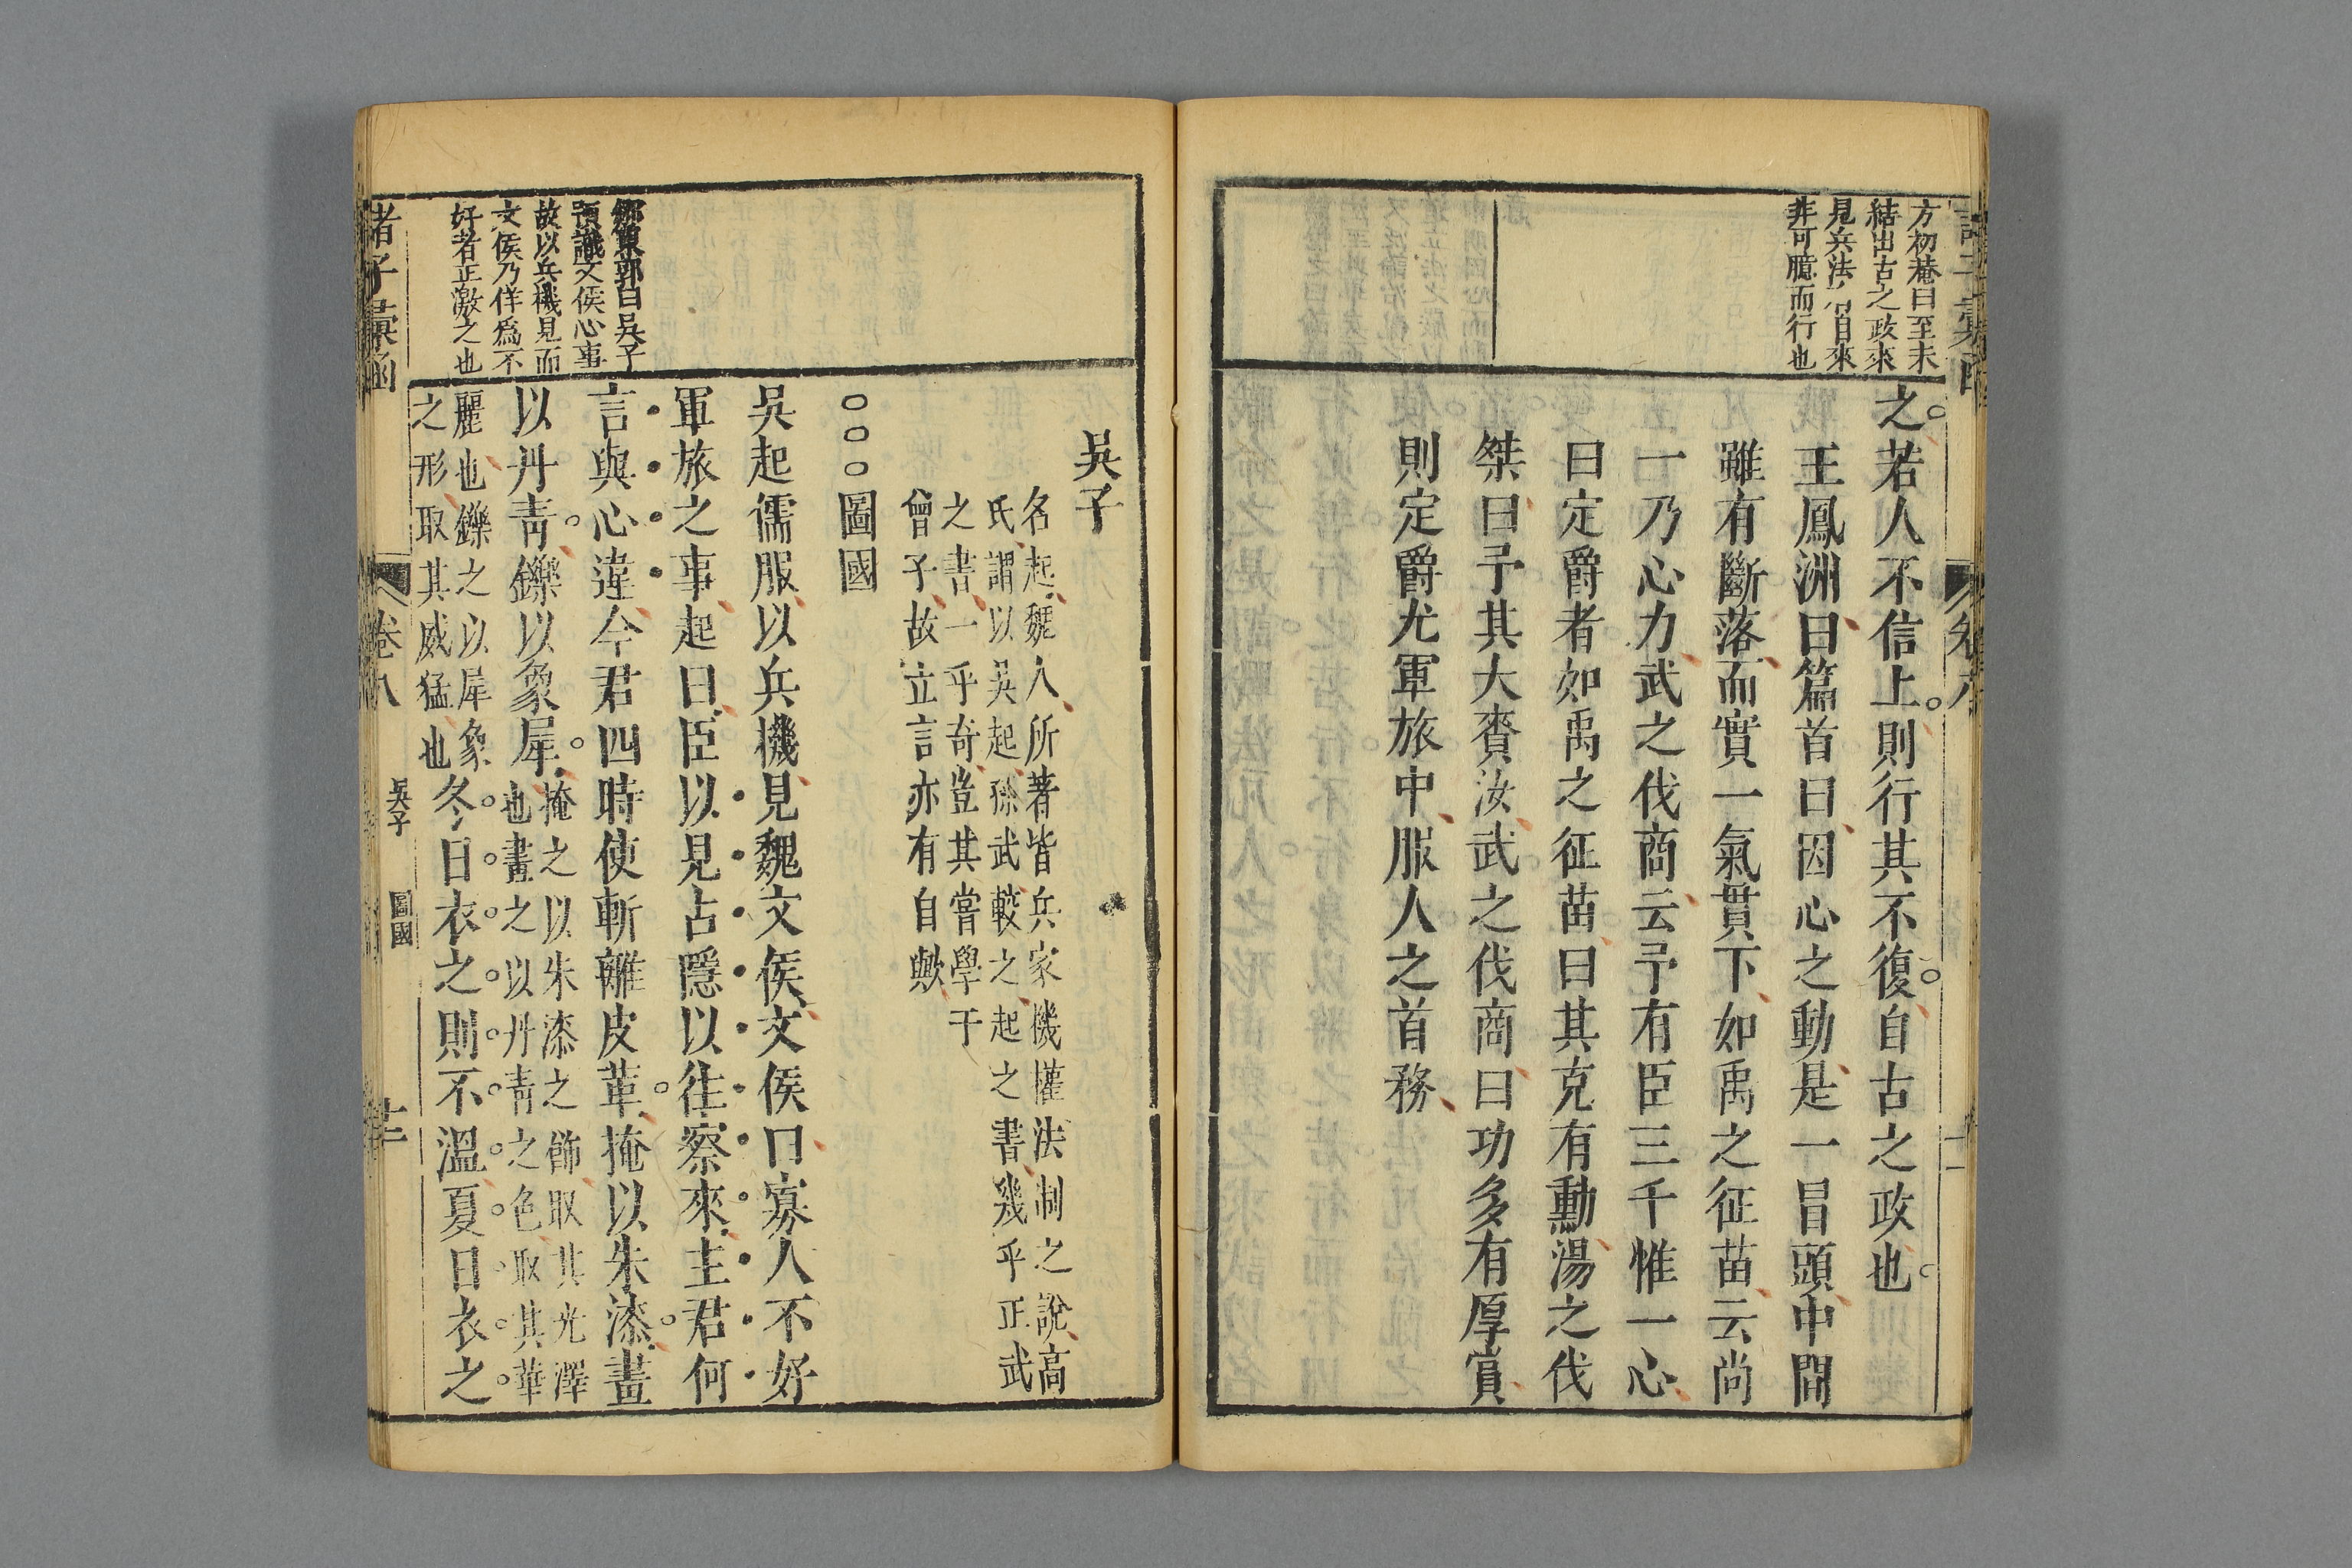 方初菴曰至末
結出古之政來
見兵法 自來
非可臆而行也
之若人不信上則行其不復自古之政也
王鳳洲曰篇首曰因心之動是一冒頭中間
雖有斷落而實一氣貫下如禹之征苗云尚
一乃心力武之伐商云予有臣三千惟一心
曰定爵者如禹之征苗曰其克有勳湯之伐
桀曰予其大賚汝武之伐商曰功多有厚賞
則定爵尤軍旅中服人之首務
吳子
名起魏人所著皆兵家機權法制之說高
氏謂以吳起孫武較之起之書幾乎正武
之書一乎奇豈其嘗學于
曾子故立言亦有自歟
圖國
鄒東郭曰吳子
預識文侯心事
故以兵機見而
文侯乃佯爲不
好者正激之也
吳起儒服以兵機見魏文侯文侯曰寡人不好
軍旅之事起曰臣以見占隱以往察來主君何
言與心違今君四時使斬離皮革掩以朱漆畫
以丹青鑠以象犀掩之以朱漆之飾取其光澤
也畫之以丹青之色取其華
麗也鑠之以犀象
之形取其威猛也冬日衣之則不溫夏日衣之
諸子彙函
卷八
吳子
圖國
十二